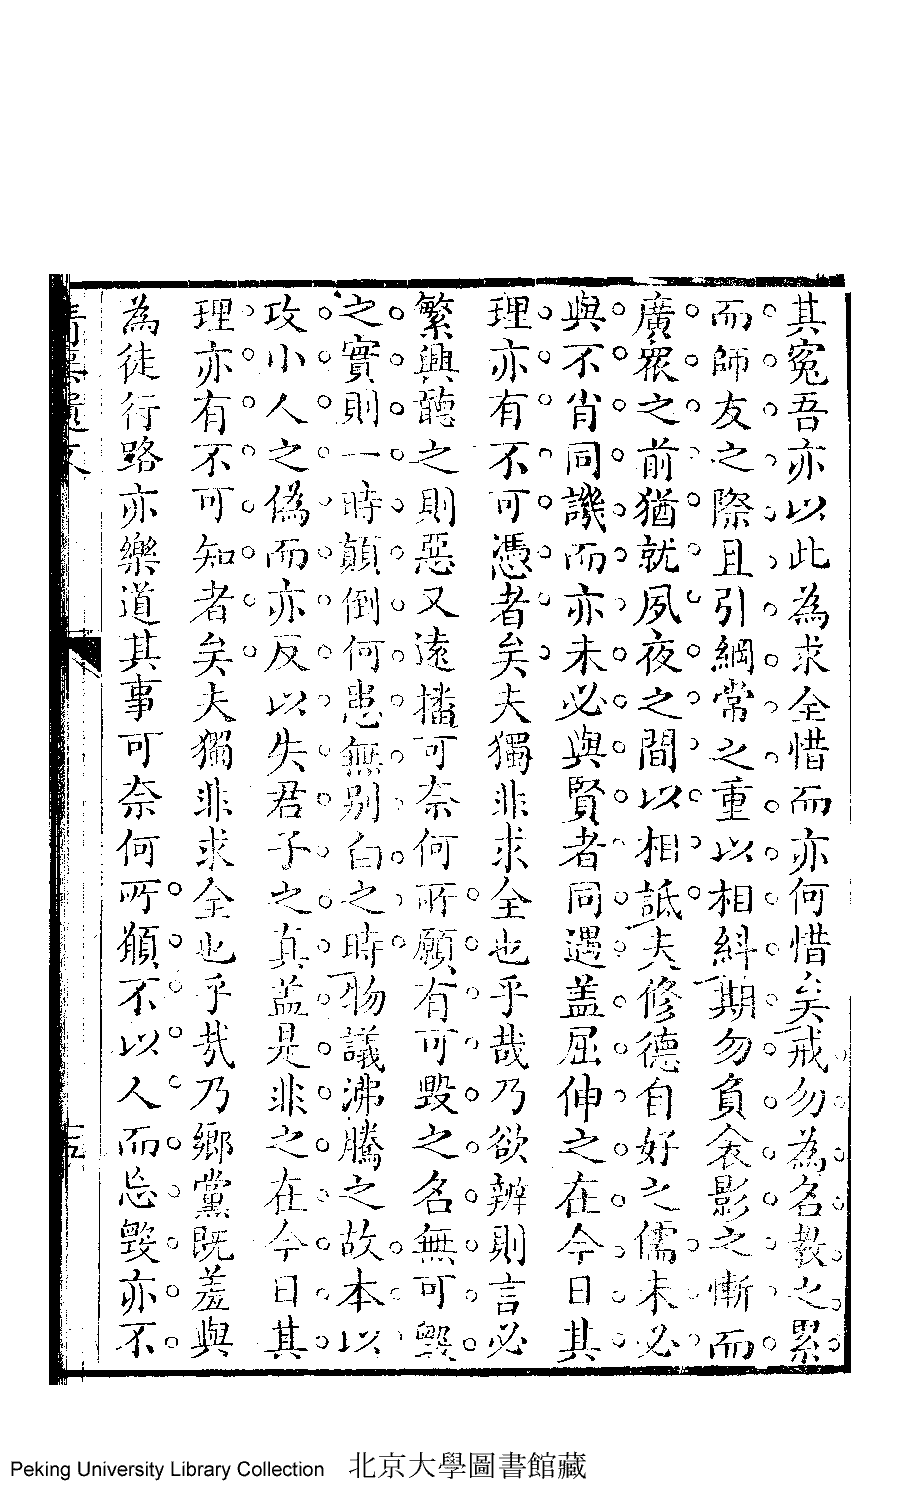 其寃吾亦以此為求全惜而亦何惜矣戒勿為名教之累
而師友之際且引綱常之重以相糾期勿負衾影之慚而
廣衆之前猶就夙夜之間以相詆夫修德自好之儒未必
與不肖同譏而亦未必與賢者同遇盖屈伸之在今日其
理亦有不可憑者矣夫獨非求全也乎哉乃欲辨則言必
繁興聽之則惡又遠播可奈何所願有可毀之名無可毀
之實則一時顛倒何患無别白之時物議沸騰之故本以
攻小人之偽而亦反以失君子之真盖是非之在今日其
理亦有不可知者矣夫獨非求全也乎哉乃鄉黨既羞與
為徒行路亦樂道其事可奈何所願不以人而忘毀亦不
北京大學圖書館藏
Peking University Library Collection